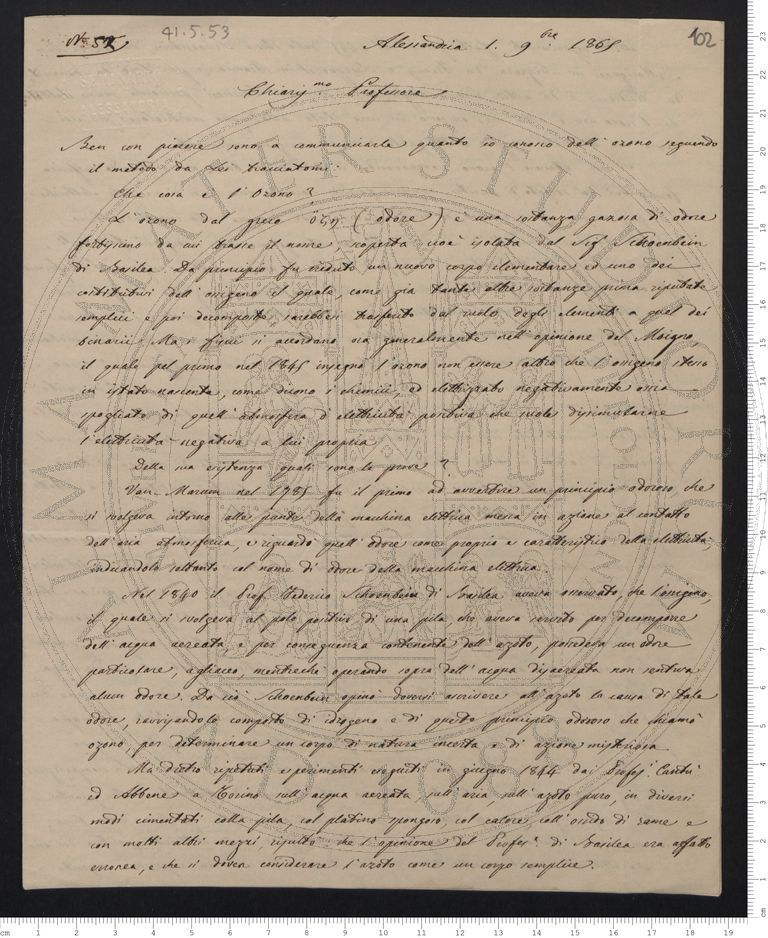 N.° 52
41.5.53
102
Alessandria 1. 9bre 1865
Chiarj.mo Professore
Ben con piacere sono a communicarle quanto io conosco dell'ozono seguendo
il metodo da Lei tracciatomi:
Che cosa è l'Ozono?
L'ozono dal greco όζη (odore) è una sostanza gazosa di odore
fortissimo da cui trasse il nome, scoperta cioè isolata dal Sig.r Schoenbein
di Basilea. Da principio fu creduto un nuovo corpo elementare ed uno dei
costitutivi dell'ossigeno il quale, come già tante altre sostanze prima riputate
semplici e poi decomposte, sarebbesi trasferito dal ruolo degli elementi a quel dei
binarii. Ma i fisici si accordano ora generalmente nell'opinione del Moigno,
il quale pel primo nel 1845 insegnò l'ozono non essere altro che l'ossigeno stesso
in istato nascente, come dicono i chimici, ed elettrizzato negativamente ossia
spogliato di quell'atmosfera d'elettricità positiva che suole dissimularne
l'elettricità negativa a lui propria.
Della sua esistenza quali sono le prove?
Van-Marum nel 1785 fu il primo ad avvertire un principio odoroso, che
si svolgeva intorno alle punte della macchina elettrica messa in azione al contatto
dell'aria atmosferica, e riguardò quell'odore come proprio e caratteristico della elettricità,
indicandolo soltanto col nome di odore della macchina elettrica.
Nel 1840 il Prof. Federico Schoenbein di Basilea aveva osservato, che l'ossigeno,
il quale si svolgeva al polo positivo di una pila che aveva servito per decomporre
dell'acqua aereata, e per conseguenza contenente dell'azoto, possedeva un odore
particolare, agliaceo, mentrechè operando sopra dell'acqua disaereata non sentiva
alcun odore. Da ciò Schoenbein opinò doversi ascrivere all'azoto la causa di tale
odore, ravvisandolo composto di idrogeno e di questo principio odoroso che chiamò
ozono, per determinare un corpo di natura incerta e di azione misteriosa.
Ma dietro ripetuti esperimenti eseguiti in giugno 1844 dai Profes.i Cantù
ed Abbene a Torino sull'acqua aereata, sull'aria sull'azoto puro, in diversi
modi cimentati colla pila, col platino spongoso, col calore coll'ossido di rame e
con molti altri mezzi, risultò che l'opinione del Profes.e di Basilea era affatto
erronea, e che si dovea considerare l'azoto come un corpo semplice.